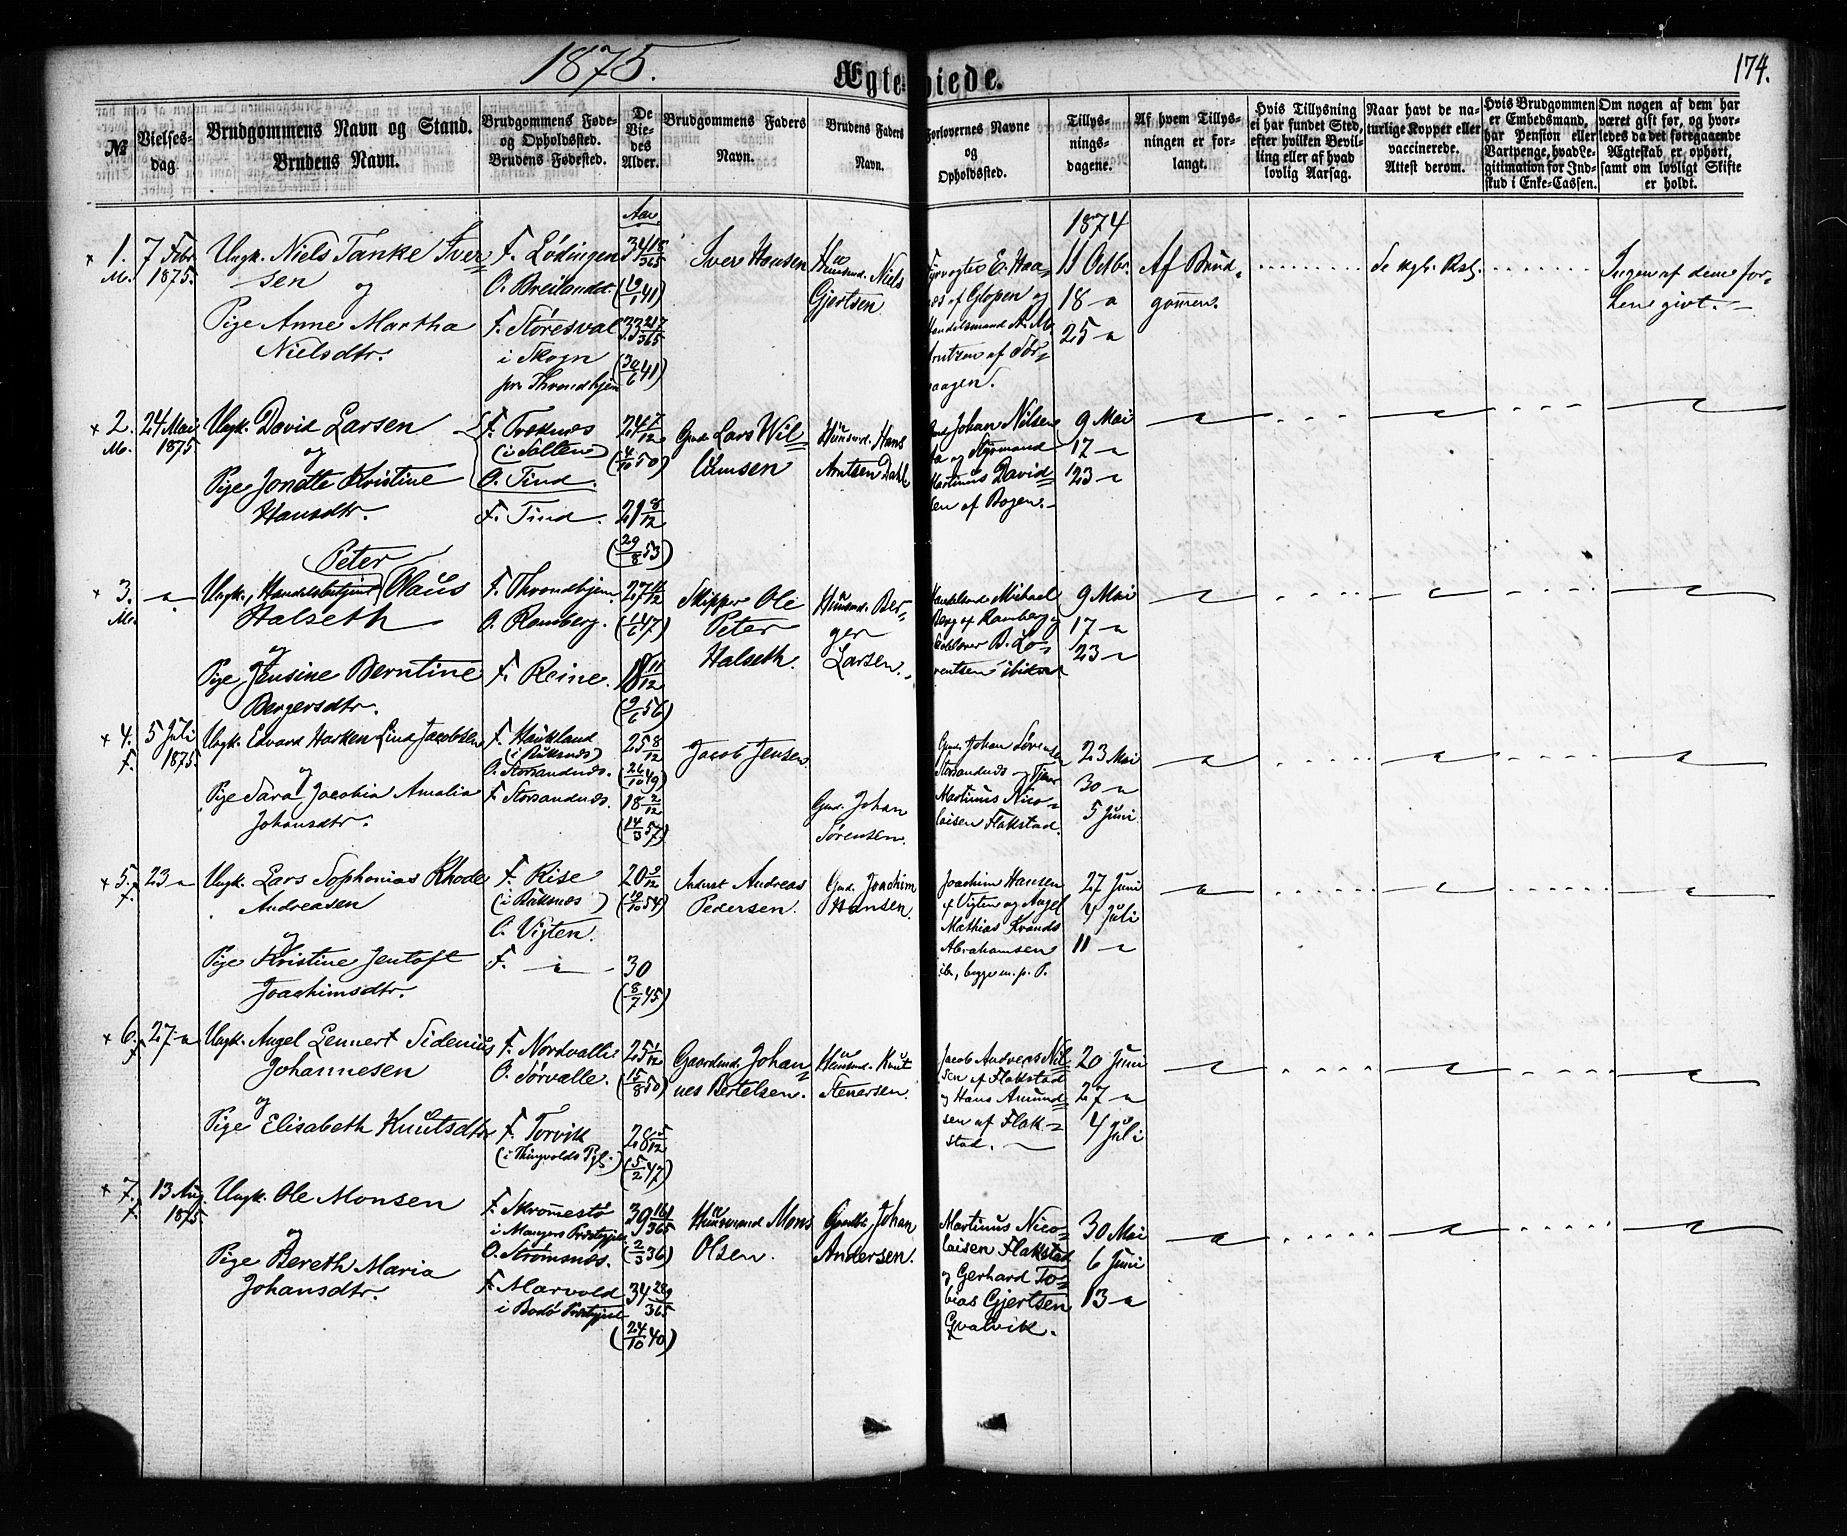 1875.
Ægteviede.
174.
№
Vielses-
dag
Brudgommens Navn og Stand.
Brudens Navn.
Brudgommens Føde-
og Opholdssted.
Brudens Fødested.
De
Vie-
des
Alder.
Brudgommens Faders
Navn.
Brudens Faders
Navn.
Forlovernes Navne
og
Opholdssted.
Tillys-
nings-
dagene.
Af hvem Tillys-
ningen er for-
langt.
Hvis Tillysning
ei har fundet Sted,
efter hvilken Bevil-
ling eller af hvad
lovlig Aarsag.
Naar havt de na-
turlige Kopper eller
vaccinerede.
Attest derom.
Hvis Brudgommen
er Embedsmand,
har Pension eller
Vartpenge, hvad Le-
gitimation for Ind-
skud i Enke-Cassen.
Om nogen af dem har
været gift før, og hvor-
ledes da det foregaaende
Ægteskab er ophørt,
samt om lovligt Skifte
er holdt.
1.
M.
7 Febr
1875.
Ungk. Niels Tanke Iver-
sen
og
Pige Anne Martha
Nielsdtr.
F. Lødingen
O. Breilandet
F. Støresval
i Skogn
pr. Throndhjem
Aar
34 18/365
(19/1 41)
33 217/365
(30/6 41)
Iver Hansen
Huusmd. Niels
Gjertsen
E. Haa-
af Glopen og
Handelsmand A. M.
af Sør-
vaagen.
1874
11 Octbr.
18 "
25 "
Af Brud-
gommen.
Se vgl. Rst.
Ingen af dem for-
hen givt.
2.
M.
24 Mai
1875.
Ungk. David Larsen
og
Pige Jonette Kristine
Hansdtr.
F. Troknes
(i Salten)
O. Tind
F. Tind.
24 7/12
(4/10 50)
21 8/12
(29/8 53)
Gmd. Lars Wil-
lumsen
Huusmd. Hans
Arntsen Dahl
Johan Nilsen
og Styrmand
Martinus David-
sen af Bogen.
9 Mai
17 "
23 "
3.
M.
"
Peter
Ungk., Handelsbetjent Olaus
Halseth
og
Pige Jensine Berntine
Bergersdtr.
F. Throndhjem
O. Ramberg.
F. Reine.
27 11/12
(11/6 47)
18 11/12
(9/6 56)
Skipper Ole
Peter
Halseth.
Huusmd. Ber-
ger
Larsen.
Handelsmd. Mikael
Berg af Ramberg og
B. Lo-
rentsen ibidem
9 Mai
17 "
23 "
4.
F.
5 Juli
1875.
Ungk. Edvard Harken Lind Jacobsen
og
Pige Sara Jacobia Amalia
Johansdtr.
F. Haukland
(i Buksnæs)
O. Storsandnæs.
F. Storsandnæs.
25 8/12
(26/10 49)
18 2/12
(14/3 57)
Jacob Jensen
Gmd. Johan
Sørensen.
Gmd. Johan Sørensen
Storsandnæs og
Martinus Nico-
laisen Flakstad.
23 Mai
30 "
5 Juni
5.
F.
23 "
Ungk. Lars Sophonias Rhode
Andreasen
og
Pige Kristine Jentoft
Joachimsdtr.
F. Rise
(i Buksnæs)
O. Vigten.
F. "
20 9/12
(19/10 54)
30
(8/7 45)
Inderst Andreas
Pedersen.
Gmd. Joachim
Hansen.
Joachim Hansen
af Vigten og Angel
Mathias Krands
Abrahamsen
ib., begge m. p. P.
27 Juni
4 Juli
11 "
6.
F.
27 "
Ungk. Angel Lennert Sidenius
Johannesen
og
Pige Elisabeth Knutsdtr.
F. Nordvalle
O. Sørvalle.
F. Torvik
(i Thingvolds Pgj.)
25 1/12
(15/8 50)
28 5/12
(5/2 47)
Gaardmd. Johan-
nes Bertelsen.
Huusmd. Knut
Stenersen.
Jacob Andreas Nil-
sen af Flakstad
og Hans Amund-
sen af Flak-
stad.
20 Juni
27 "
4 Juli
7.
F.
13 Aug.
1875.
Ungk. Ole Monsen
og
Pige Bereth Maria
Johansdtr.
F. Skromestø
i Mangers Præstegjeld
O. Strømsnes.
F. Marvold
i Bodø Præstegjeld
39 164/365
(2/3 36)
34 289/365
(24/10 40)
Huusmand Mons
Olsen.
Gmdbr. Johan
Andersen.
Martinus Nico-
laisen Flakstad
og Gerhard To-
bias Gjertsen
Qvalvik.
30 Mai
6 Juni
13 "